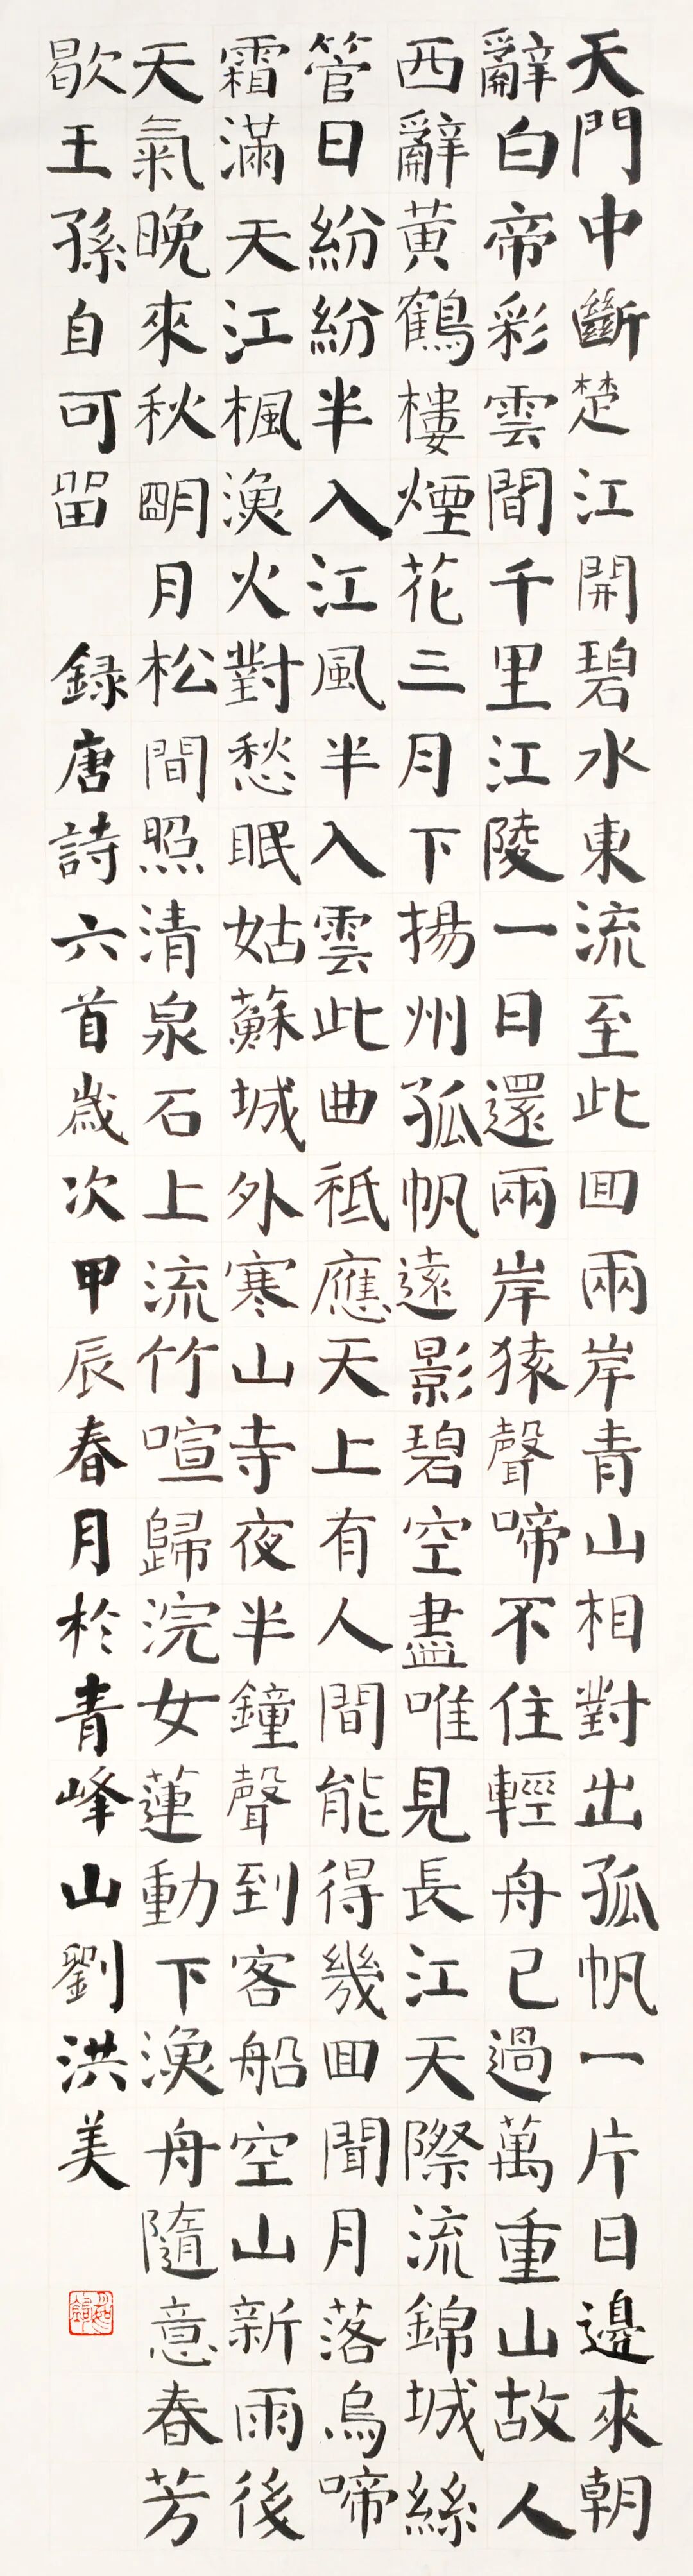 天門中斷楚江開碧水東流至此回兩岸青山相對出孤帆一片日邊來朝
辭白帝彩雲間千里江陵一日還兩岸猿聲啼不住輕舟已過萬重山故人
西辭黄鶴樓煙花三月下揚州孤帆遠影碧空盡唯見長江天際流錦城絲
管日紛紛半入江風半入雲此曲祗應天上有人間能得幾回聞月落烏啼
霜滿天江楓漁火對愁眠姑蘇城外寒山寺夜半鐘聲到客船空山新雨後
天氣晚來秋明月松間照清泉石上流竹喧歸浣女蓮動下漁舟隨意春芳
歇王孫自可留 録唐詩六首歲次甲辰春月於青峰山劉洪美